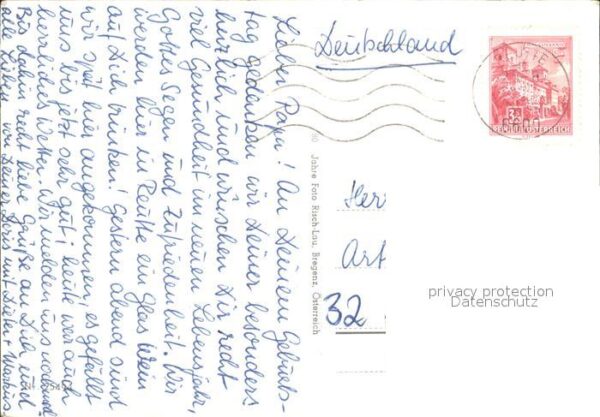 Lieber Papa! An Deinem Geburts-
tag gedenken wir Deiner besonders
herzlich und wünschen Dir recht
viel Gesundheit im neuen Lebensjahr,
Gottes Segen und Zufriedenheit. Wir
werden hier in Reutte ein Glas Wein
auf Dich trinken! Gestern abend sind
wir spät hier angekommen, es gefällt
uns bis jetzt sehr gut! heute war auch
herrliches Wetter. Wir melden uns nochmal
Bis dahin recht liebe Grüße an Dich und
alle Lieben von Deiner Doris mit Dieter + Markus
90 Jahre Foto Risch-Lau, Bregenz, Österreich
Deutschland
3 S
REPUBLIK ÖSTERREICH
6600
Her
Art
32
privacy protection
Datenschutz